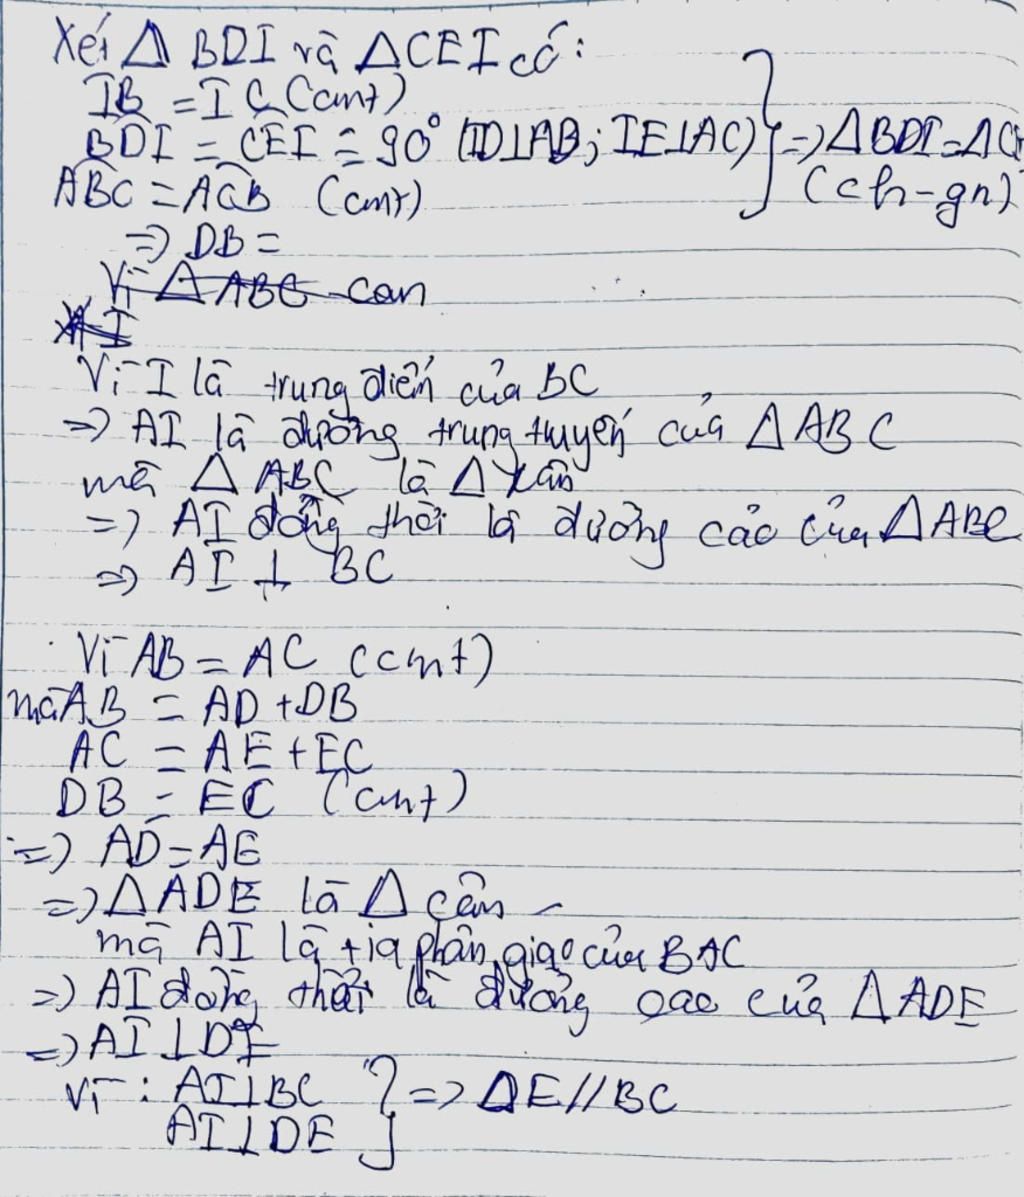 Xét Δ BDI và ΔCEI có:
IB = IC (cmt)
BDI = CEI = 90° (ID⊥AB; IE⊥AC) } => ΔBDI = ΔC
ABC = ACB (cmt) (ch-gn)
=> DB =
Vì Δ ABC can
Vì I là trung điểm của BC
=> AI là đường trung tuyến của Δ ABC
mà Δ ABC là Δ cân
=> AI đồng thời là đường cao của ΔABC
=> AI ⊥ BC
Vì AB = AC (cmt)
mà AB = AD + DB
AC = AE + EC
DB = EC (cmt)
=> AD = AE
=> Δ ADE là Δ cân
mà AI là tia phân giac của BAC
=> AI đồng thời là đường cao của Δ ADE
=> AI ⊥ DE
Vì : AI⊥BC } => DE // BC
AI⊥DE